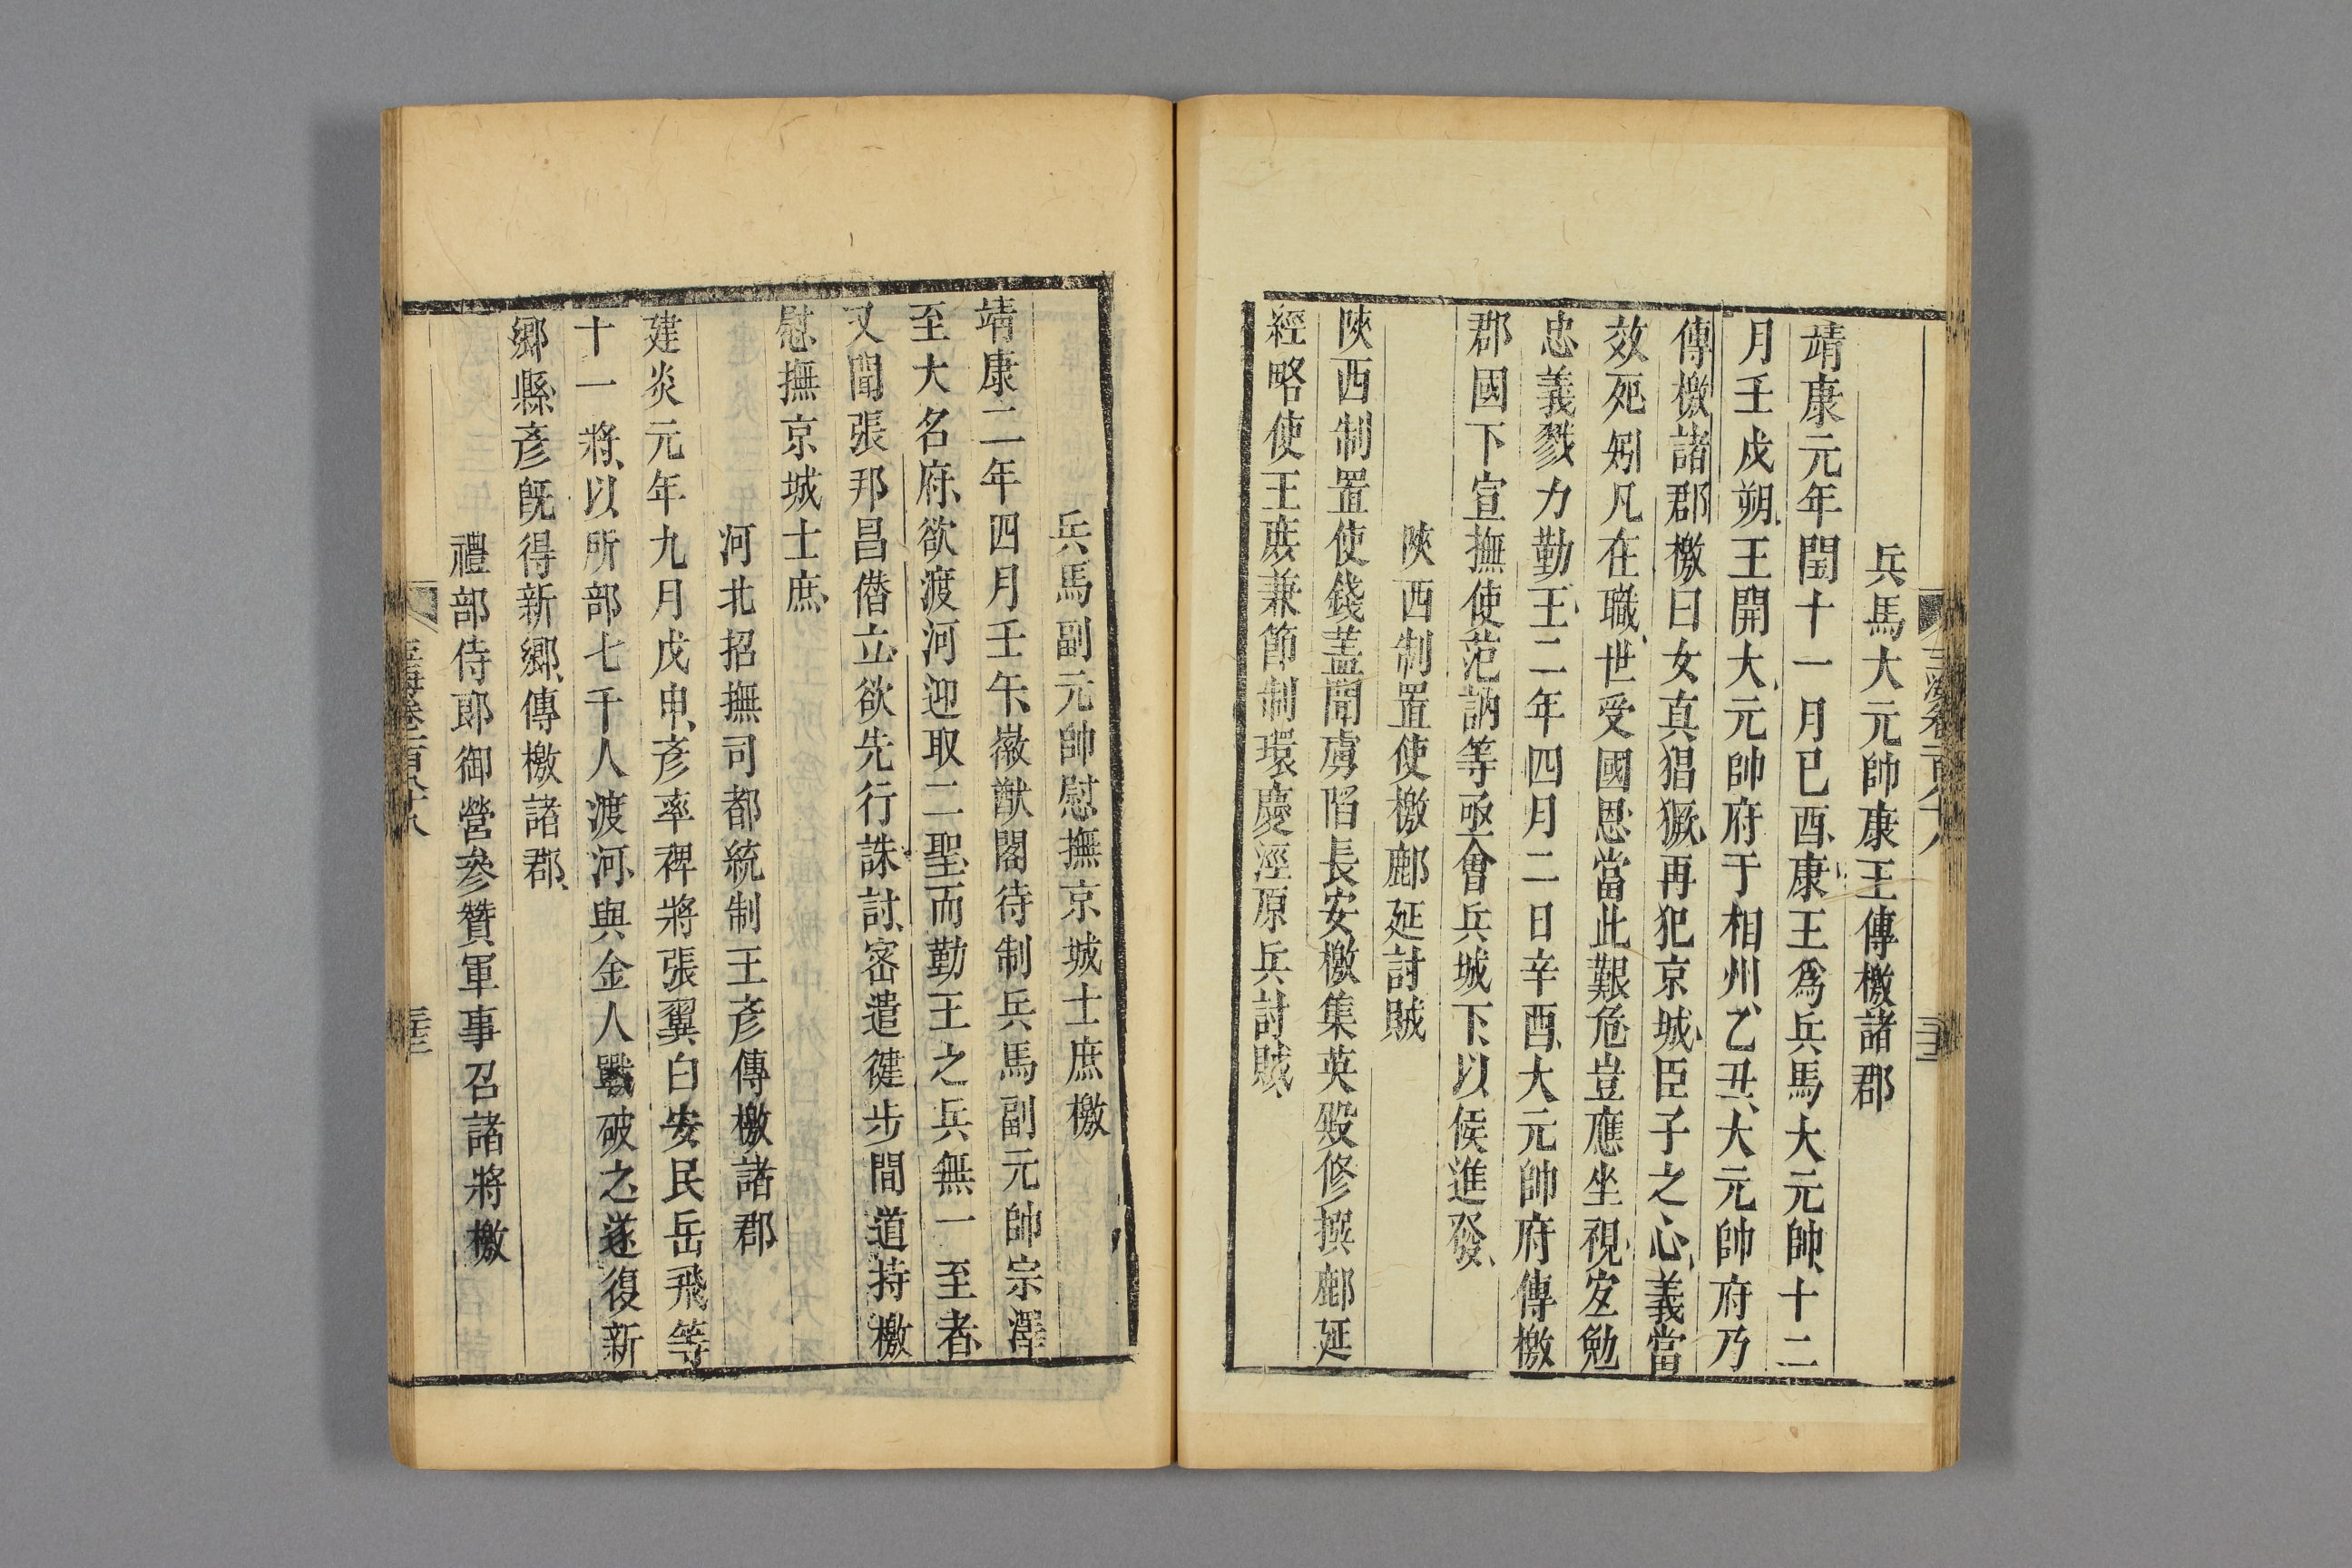 兵馬大元帥康王傳檄諸郡
靖康元年閏十一月已酉、康王爲兵馬大元帥、十二
月壬戌朔、王開大元帥府于相州、乙丑、大元帥府乃
傳檄諸郡檄曰女真猖獗、再犯京城、臣子之心、義當
效死矧凡在職、世受國恩當此艱危豈應坐視、宐勉
忠義戮力勤王、二年四月二日辛酉、大元帥府傳檄
郡國下宣撫使范訥等亟會兵城下、以俟進發、
陜西制置使檄鄜延討賊
陜西制置使錢蓋聞虜陷長安檄集英殿修撰鄜延
經略使王庻兼節制環慶涇原兵討賊、
兵馬副元帥慰撫京城士庶檄
靖康二年四月壬午、徽猷閣待制兵馬副元帥宗澤
至大名府、欲渡河迎取二聖、而勤王之兵無一至者、
又聞張邦昌僣立、欲先行誅討、密遣健步間道持檄
慰撫京城士庶、
河北招撫司都統制王彥傳檄諸郡
建炎元年九月戊申、彥率裨將張翼白安民岳飛等
十一將、以所部七千人渡河、與金人戰破之、遂復新
鄉縣、彥旣得新鄉、傳檄諸郡、
禮部侍郎御營參贊軍事召諸將檄